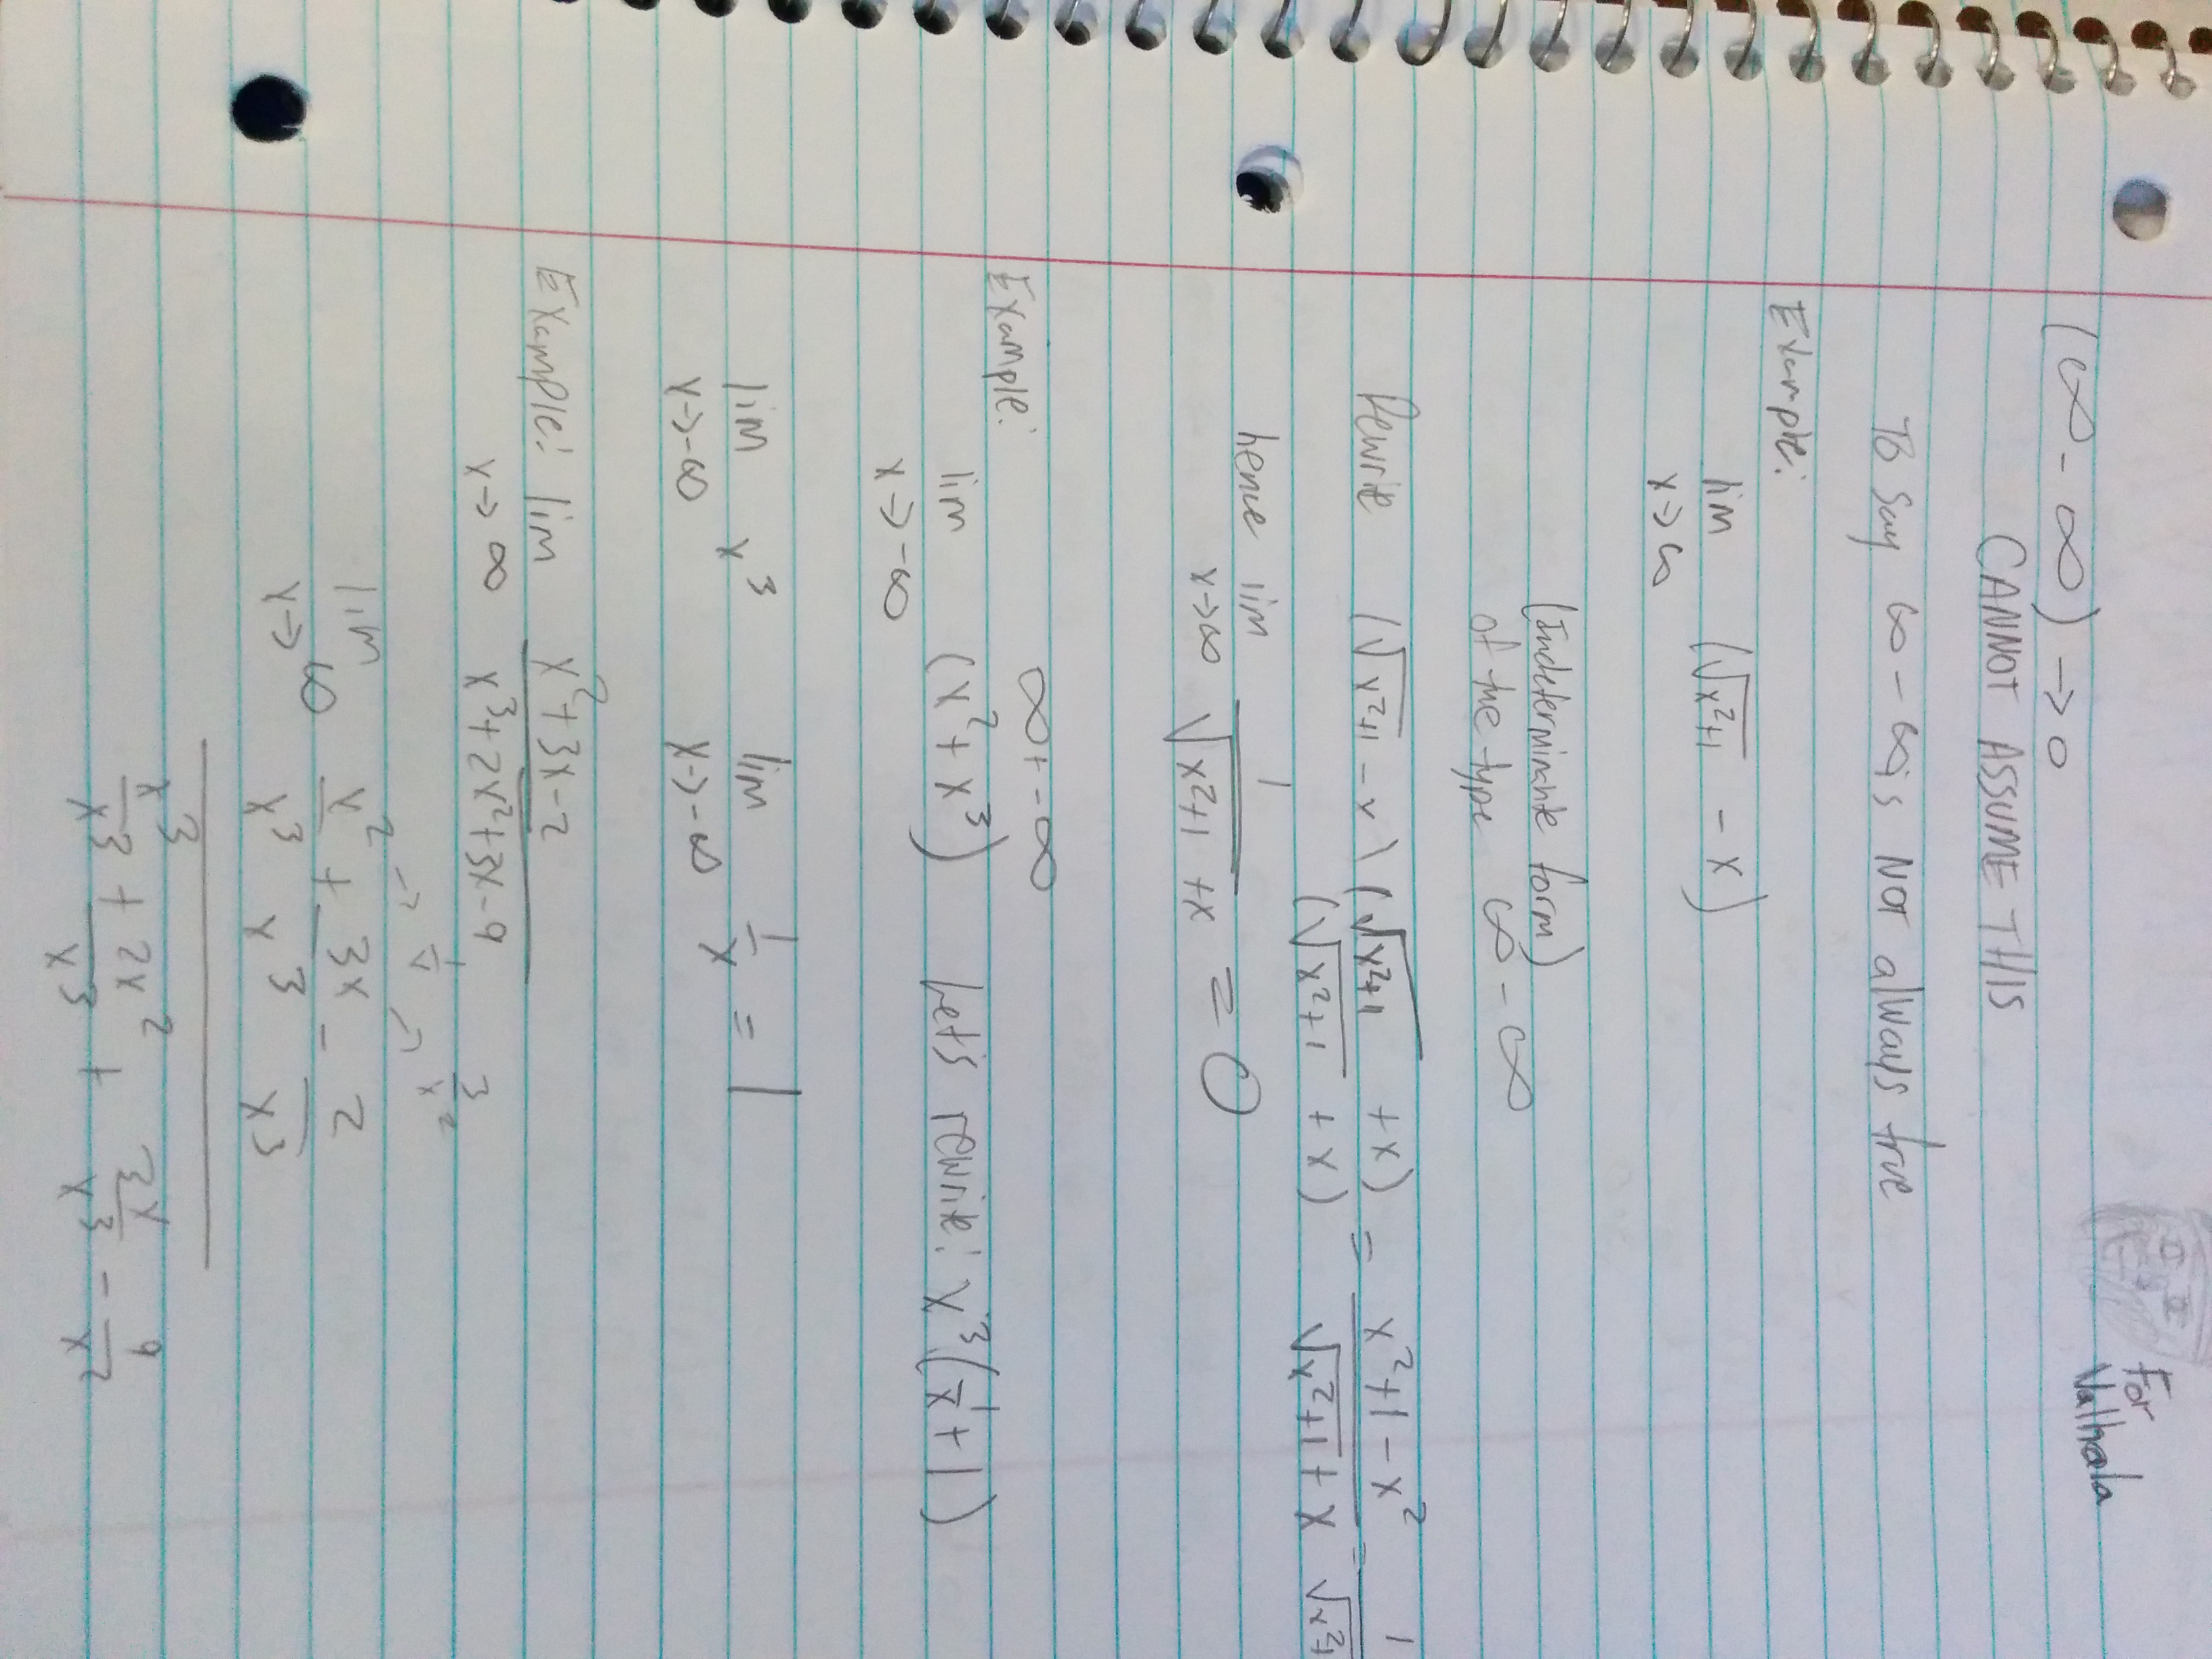 For
Valhala
(∞ - ∞) → 0
CANNOT ASSUME THIS
To say ∞ - ∞ is NOT always true
Example:
lim (√x²+1 - x)
x→∞
(Indeterminate form)
of the type ∞ - ∞
Rewrite (√x²+1 - x) (√x²+1 + x) = x²+1-x² = 1
(√x²+1 + x) √x²+1 + x √x²+1
hence lim 1 = 0
x→∞ √x²+1 +x
∞ + -∞
Example:
lim (x² + x³) Let's rewrite: x³(1/x + 1)
x→-∞
lim x³ lim 1/x = 1
x→-∞ x→-∞
Example: lim x²+3x-2
x→∞ x³+2x²+3x-9
1/x 3/x²
lim x²/x³ + 3x/x³ - 2/x³
x→∞
x³/x³ + 2x²/x³ + 3x/x³ - 9/x²